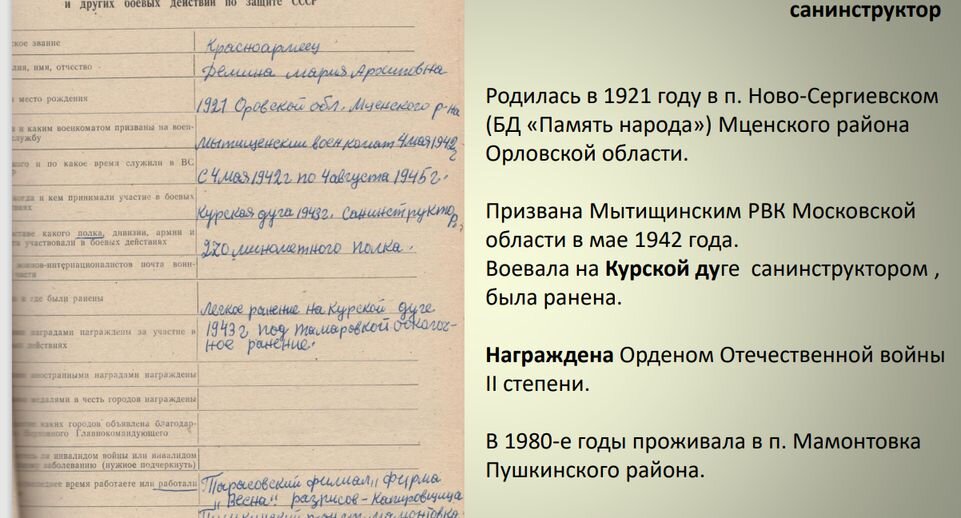 и других боевых действий по защите СССР
ское звание
Красноармеец
лия, имя, отчество
Демина Мария Архиповна
и место рождения
1921 Орловской обл. Мценского р-на
а и каким военкоматом призваны на воен-
службу
Мытищенский военкомат 4 мая 1942 г
кого и по какое время служили в ВС
Р
С 4 мая 1942 г по 4 августа 1945 г.
когда и кем принимали участие в боевых
виях
Курская дуга 1943 г. санинструктор,
ставе какого полка, дивизии, армии и
та участвовали в боевых действиях
270 минометного полка.
воинов-интернационалистов почта воин-
части
и где были ранены
Легкое ранение на Курской дуге
1943 г под Тамаровкой осколоч-
ное ранение.
наградами награждены за участие в
действиях
иностранными наградами награждены
медалями в честь городов награждены
каких городов объявлена благодар-
Верховного Главнокомандующего
инвалидом войны или инвалидом
заболеванию (нужное подчеркнуть)
время работаете или работали
Тарасовский филиал "фирма
"Весна" разрисов-капировщица
Мамонтовка
санинструктор
Родилась в 1921 году в п. Ново-Сергиевском
(БД «Память народа») Мценского района
Орловской области.
Призвана Мытищинским РВК Московской
области в мае 1942 года.
Воевала на Курской дуге санинструктором ,
была ранена.
Награждена Орденом Отечественной войны
II степени.
В 1980-е годы проживала в п. Мамонтовка
Пушкинского района.